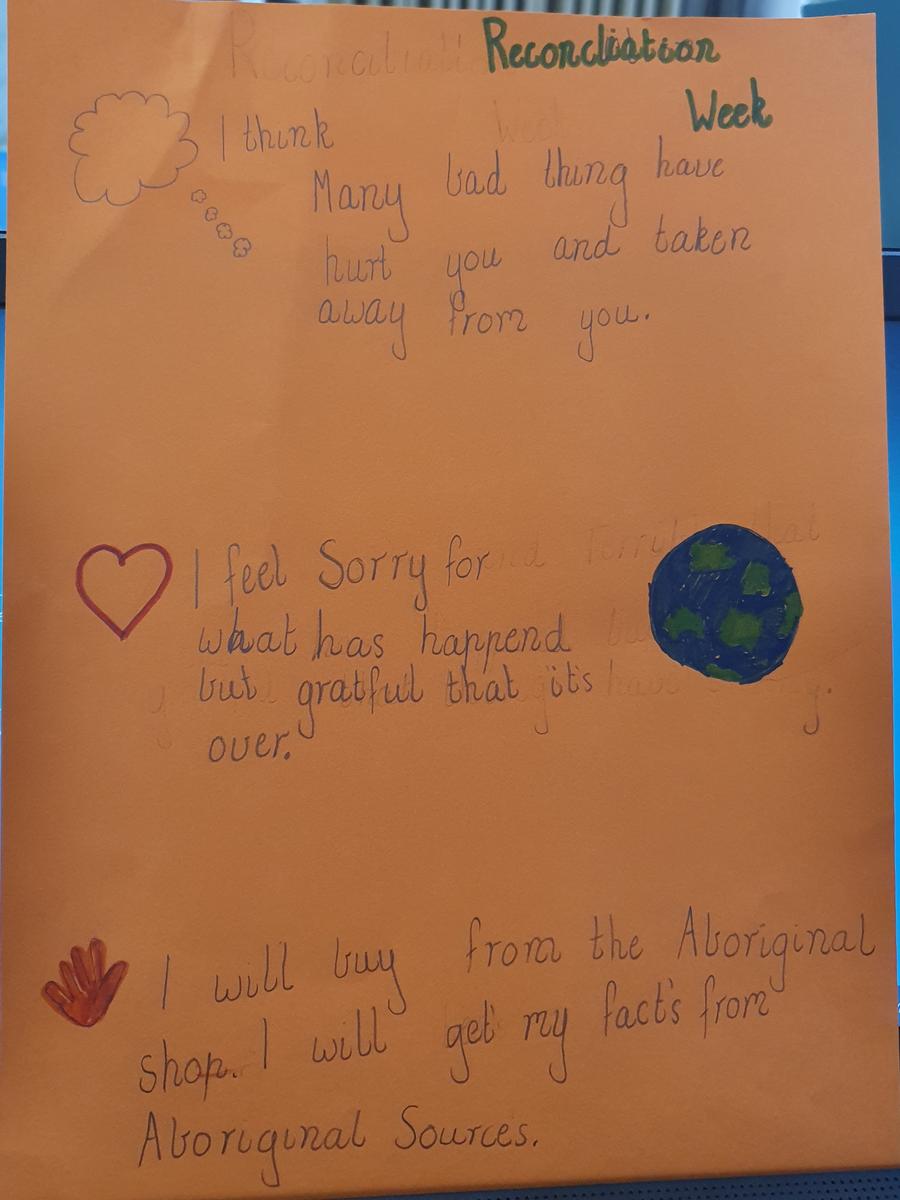 Reconcliation
Week
I think
Many bad thing have
hurt you and taken
away from you.
I feel Sorry for
what has happend
but gratful that it's
over.
I will buy from the Aboriginal
shop. I will get my fact's from
Aboriginal Sources.